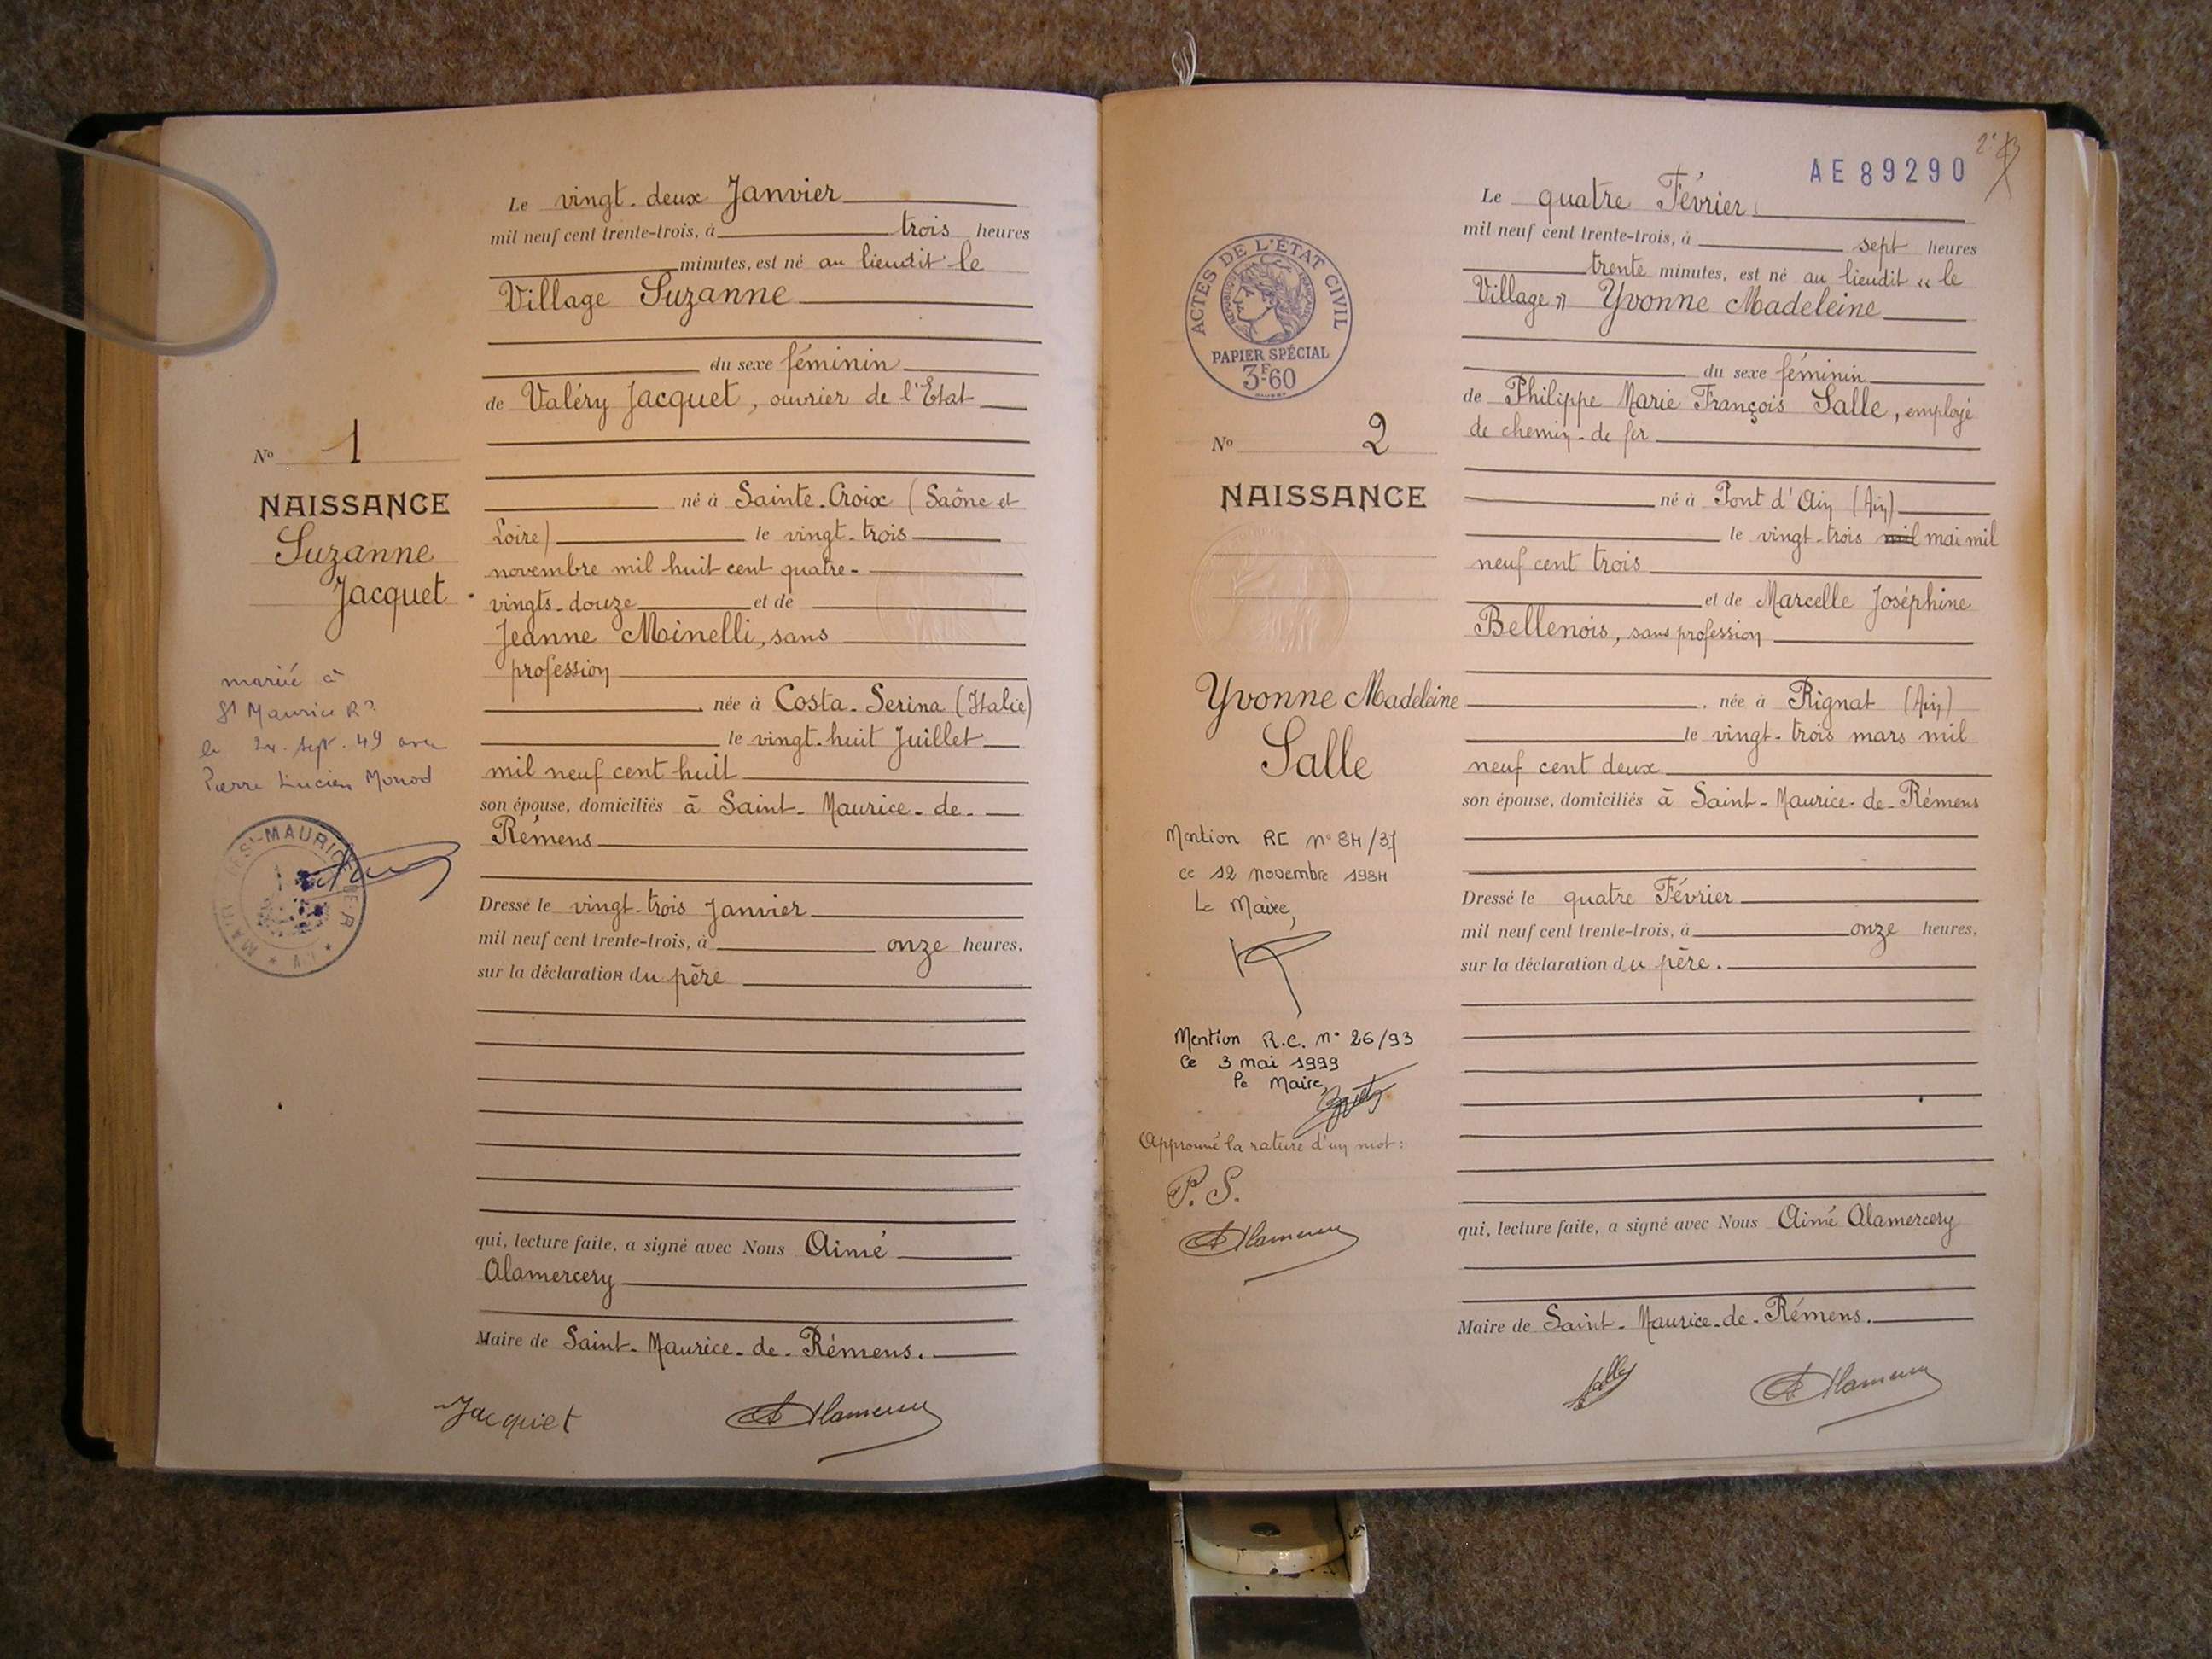 Le vingt-deux Janvier
mil neuf cent trente-trois, à trois heures
minutes, est né au lieudit le
Village Suzanne
du sexe féminin
de Valéry Jacquet, ouvrier de l'Etat
né à Sainte-Croix (Saône et
Loire) le vingt-trois
novembre mil huit cent quatre-
vingts-douze et de
Jeanne Minelli, sans
profession
née à Costa-Serina (Italie)
le vingt-huit Juillet
mil neuf cent huit
son épouse, domiciliés à Saint-Maurice-de-
Rémens
Dressé le vingt-trois Janvier
mil neuf cent trente-trois, à onze heures,
sur la déclaration du père
qui, lecture faite, a signé avec Nous Aimé
Alamercery
Maire de Saint-Maurice-de-Rémens.
Jacquet
Nº 1
NAISSANCE
Suzanne
Jacquet
mariée à
St Maurice
le 24 sept. 49 avec
Pierre Lucien Monod
AE 89290
Le quatre Février
mil neuf cent trente-trois, à sept heures
trente minutes, est né au lieudit « le
Village » Yvonne Madeleine
du sexe féminin
de Philippe Marie François Salle, employé
de chemin-de fer
né à Pont d'Ain (Ain)
le vingt-trois mil mai mil
neuf cent trois
et de Marcelle Joséphine
Bellenois, sans profession
née à Rignat (Ain)
le vingt-trois mars mil
neuf cent deux
son épouse, domiciliés à Saint-Maurice-de-Rémens
Dressé le quatre Février
mil neuf cent trente-trois, à onze heures,
sur la déclaration du père.
qui, lecture faite, a signé avec Nous Aimé Alamercery
Maire de Saint-Maurice-de-Rémens.
ACTES DE L'ÉTAT CIVIL
PAPIER SPÉCIAL
3F60
Nº 2
NAISSANCE
Yvonne Madeleine
Salle
Mention RE n° 84/37
ce 12 novembre 1984
Le Maire,
Mention R.C. n° 26/93
Ce 3 mai 1999
le Maire,
Approuvé la rature d'un mot :
P. S.